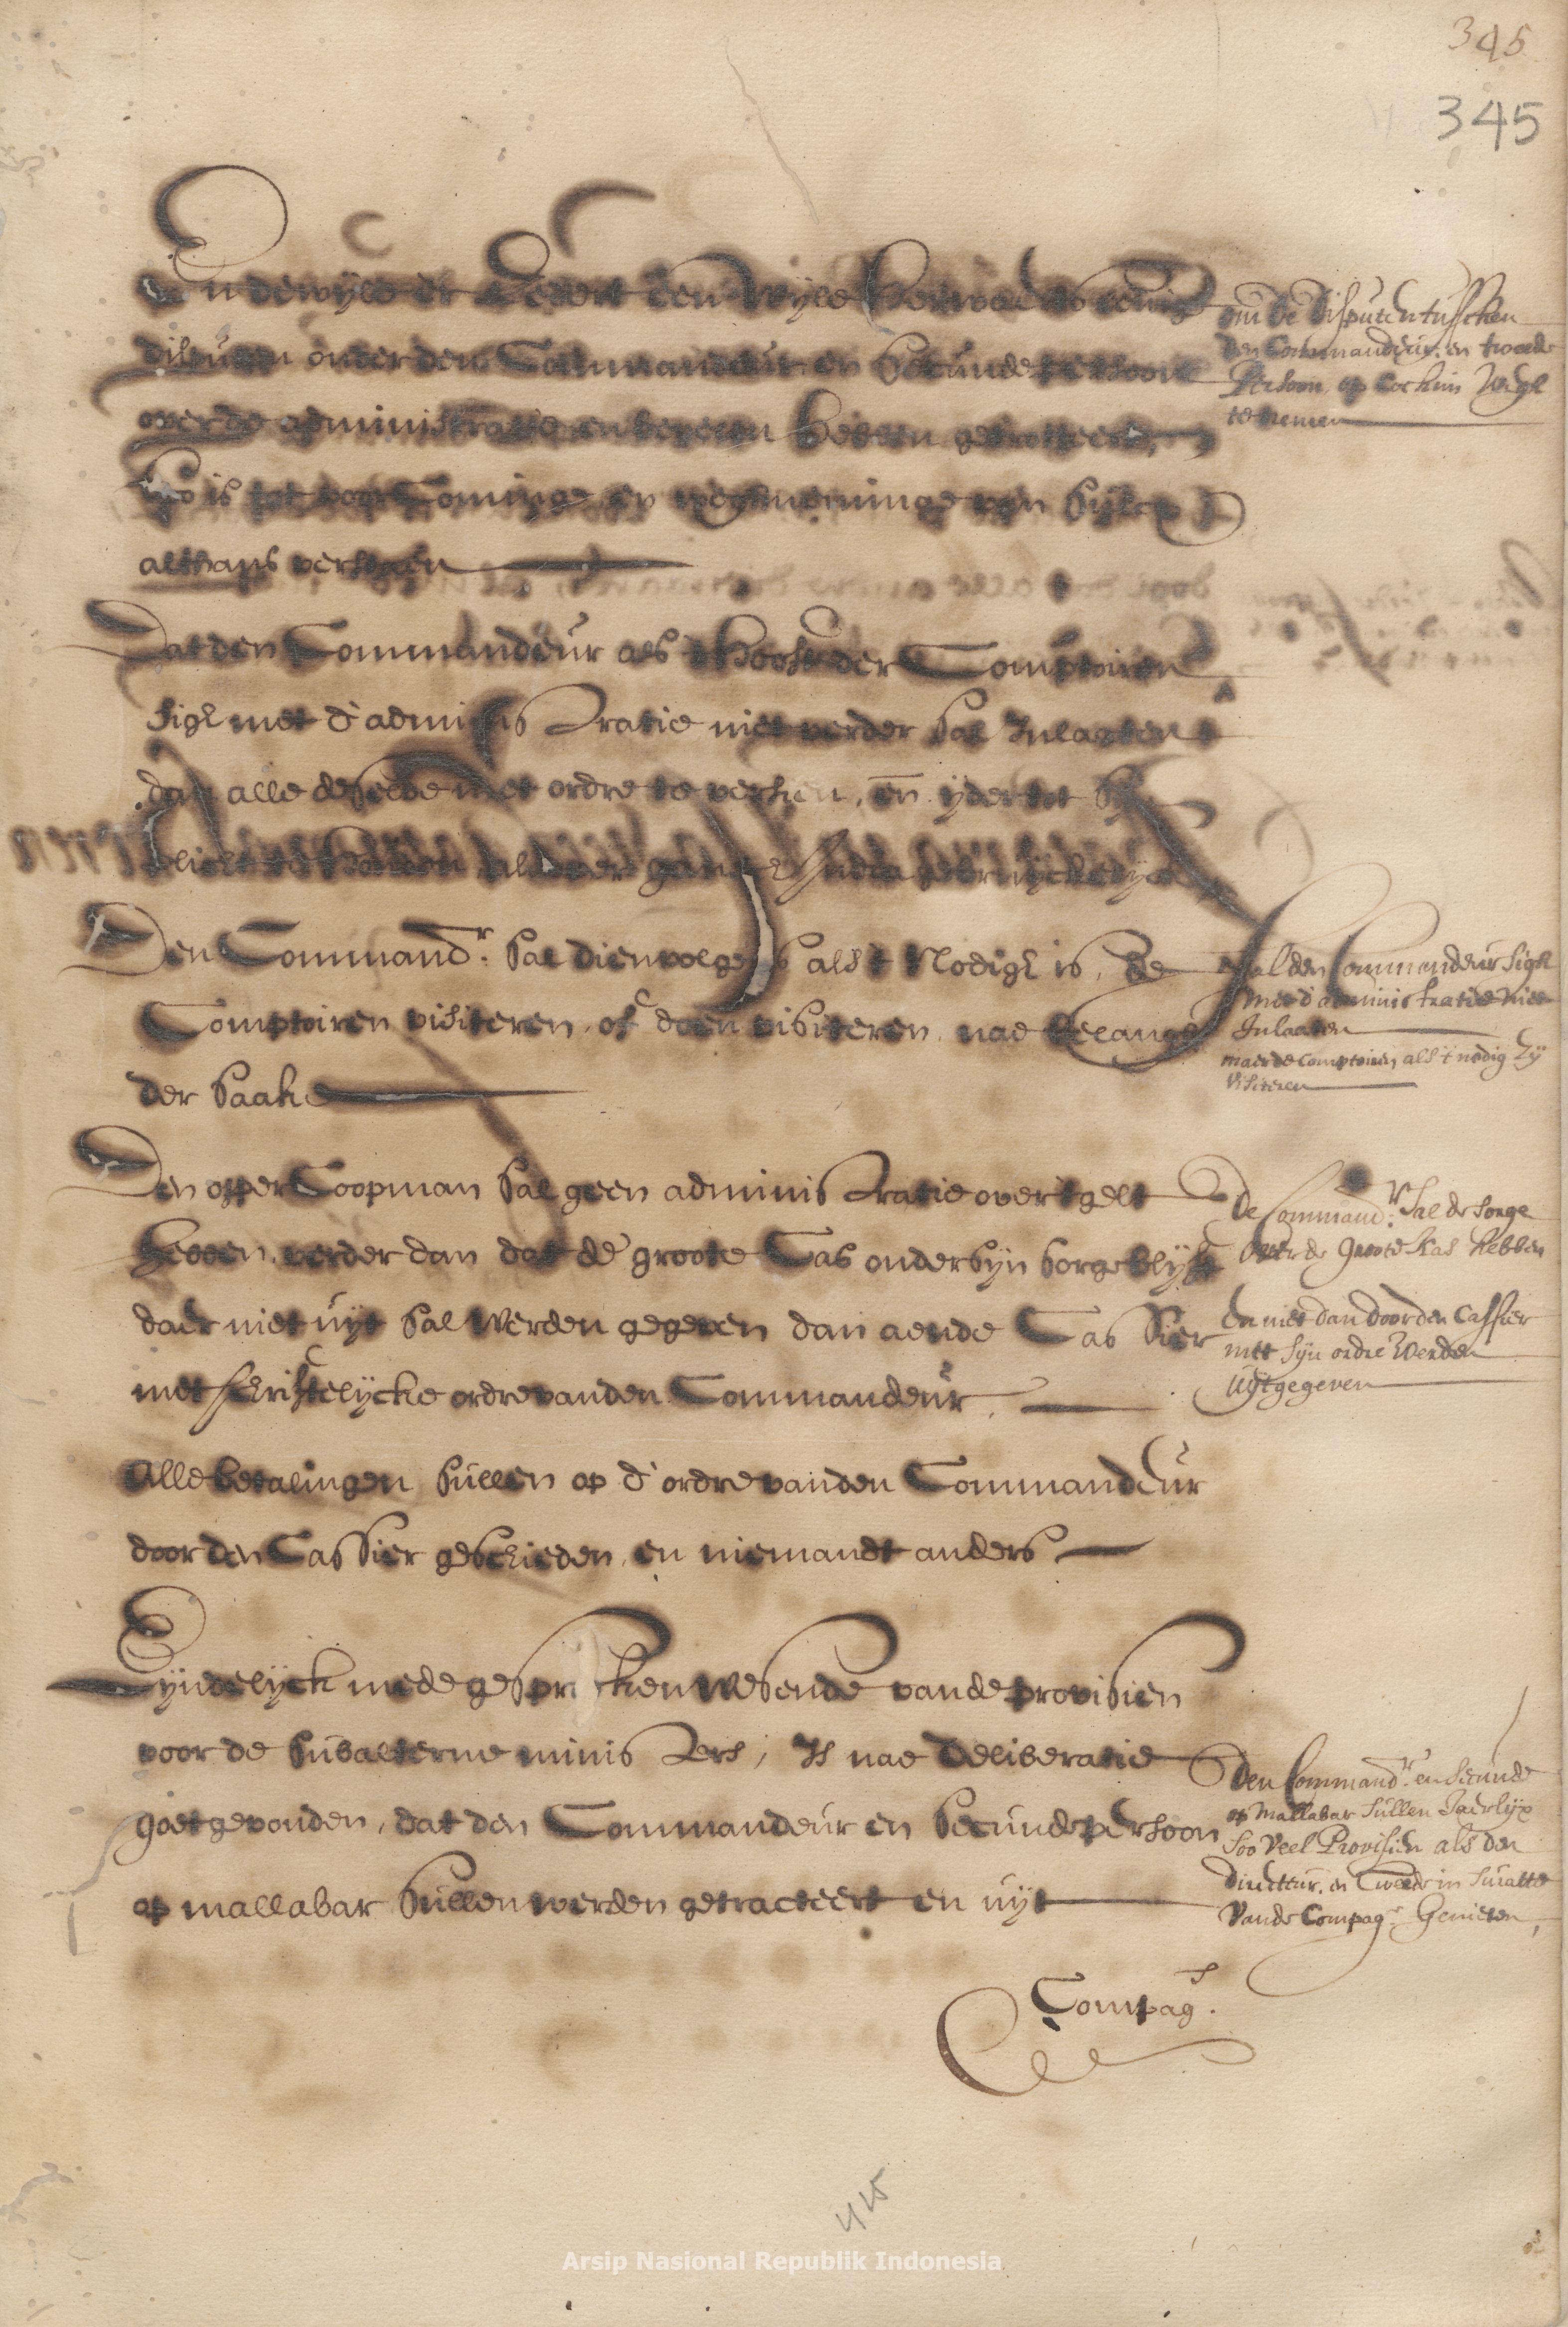 345
345
En dewyle er Sedert een wyle herwaerts eenige
disputen onder den Commandeur en Secunde persoon
over de administratie en bevelen hebben getracteert,
Soo is tot voor Cominge en weghneminge van Sulcx
althans verstaen
om de disputen tusschen
den Commandeur en tweede
Persoon op Cochim Wegh
te nemen
Dat den Commandeur als t hooft der Comptoiren
sigh met d' administratie niet verder Sal Inlaeten
dan alle deselve met ordre te versien, en yder tot Syn
plicht te houden, als over gants India gebruyckelyck
Den Command:r Sal dienvolgens als 't Nodigh is, de
Comptoiren visiteren, of doen visiteren, nae belangh
der Saake
Sal den Commandeur sigh
met d' administratie niet
Inlaaten
maer de Comptoiren als 't nodig zy
visiteren
Den opper Coopman Sal geen administratie over 't gelt
hebben, verder dan dat de groote Cas onder syn sorge blyft
daer niet uyt Sal werden gegeven dan aen de Cassier
met schriftelycke ordre van den Commandeur.
De Command:r Sal de sorge
over de groote Kas hebben
en niet dan door den Cassier
met syn ordre Werden
uytgegeven
Alle betalingen sullen op d' ordre van den Commandeur
door den Cassier geschieden, en niemandt anders
Eyndelyck mede gesproken wesende van de provisien
voor de subalterne ministers, Is nae deliberatie
goet gevonden, dat den Commandeur en Secunde persoon
op mallabar Sullen werden getracteert en uyt
Den Command:r en Secunde
op Mallabar Sullen Jaerlyx
soo veel Provisien als den
directeur en Tweede in Suratte
van de Compag:e Genieten,
Compag:s
415
Arsip Nasional Republik Indonesia